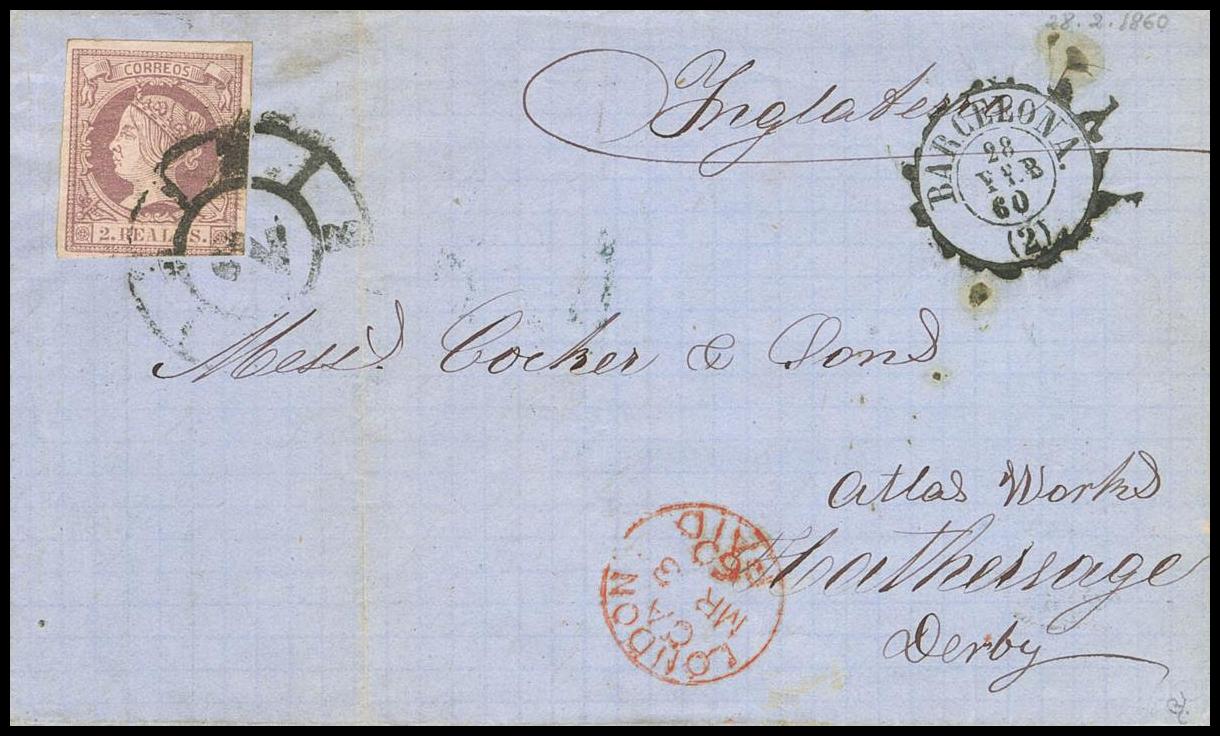 28.2.1860
CORREOS
2. REALES.
Inglaterra
BARCELONA.
28
FEB
60
(2)
Mess. Cocker & Sons
Atlas Works
Hathersage
Derby
LONDON
CA
MR 3
60
PAID